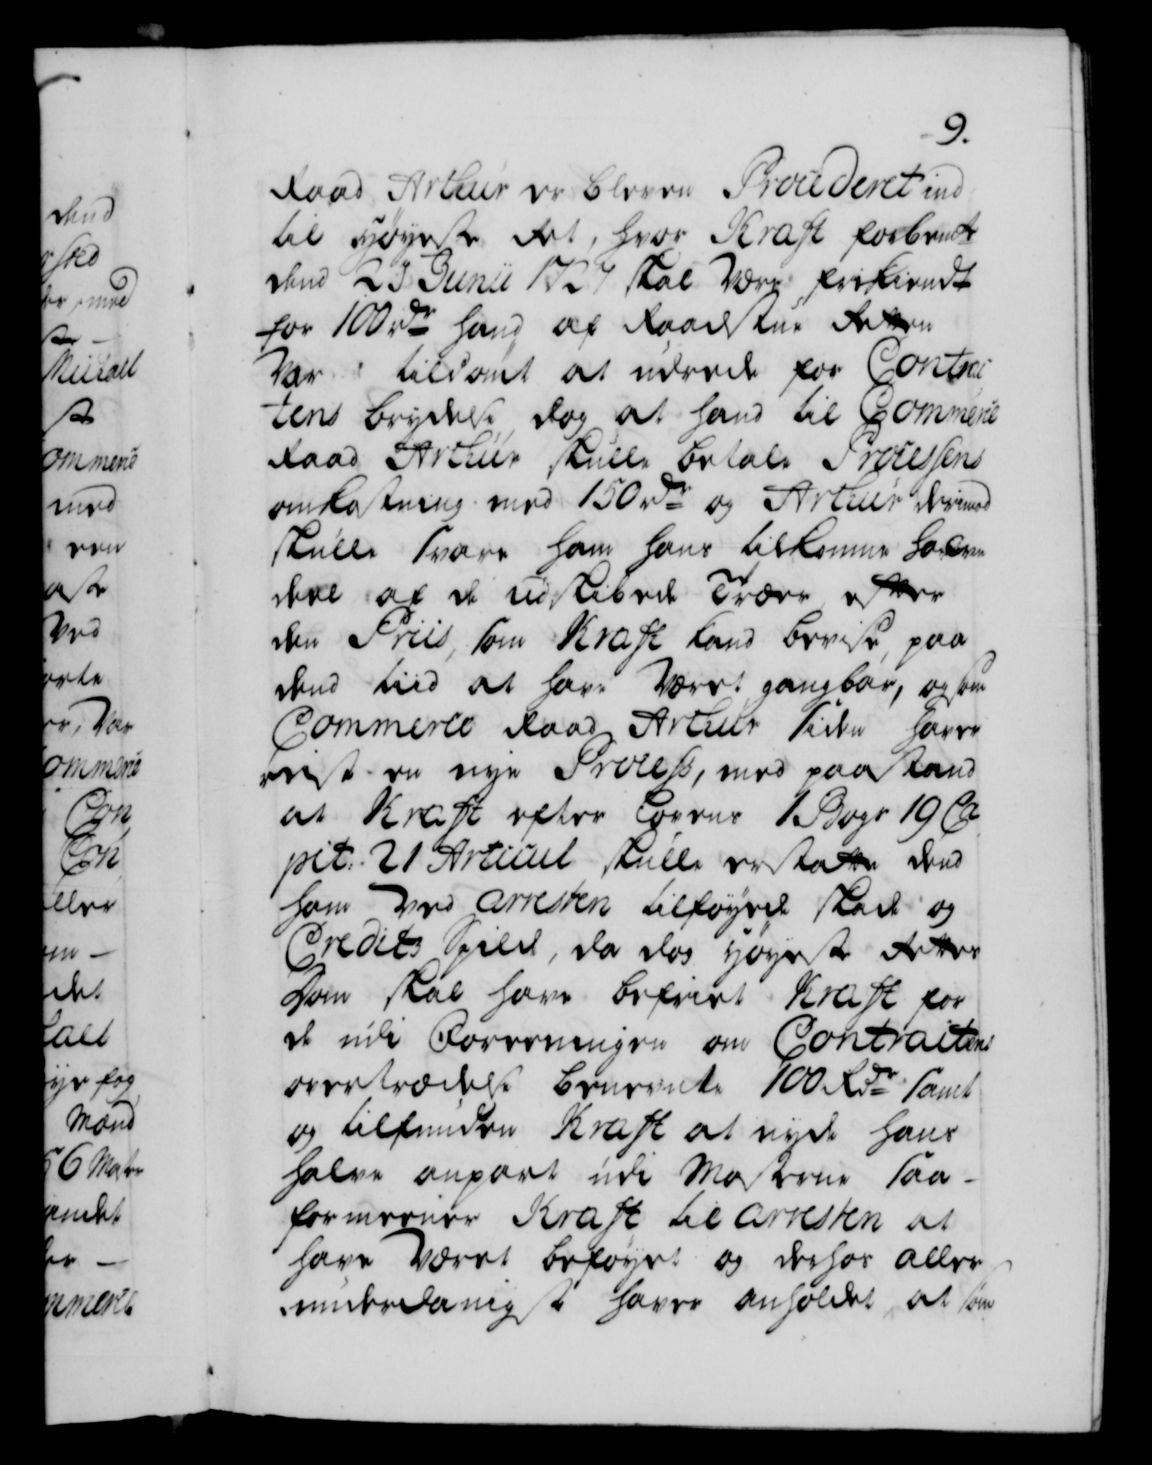 9.
Raad Arthur er bleven Procederet ind
til Høyeste Ret, hvor Kraft forbemte
dend 23 Junii 1727 skal være frikiendt
for 100 rdr hand af Raadstue Retten
Var tildømt at udrede for Contrac
tens brydelse, dog at hand til Commerce
Raad Arthur skulle betale Processens
omkostning med 150 rdr og Arthur derimod
skulle svare ham hans tilkomme halve
deel af de udskibede Træer efter
den Priis, som Kraft kand bevise, paa
dend tiid at have Været gangbar, og som
Commerce Raad Arthur siden haver
reist en nye Process, med paastand
at Kraft efter Lovens 1 Bogs 19 Ca
pit: 21 Articul skulle erstatte dend
ham Ved arresten tilføyede skade og
Credits Spild, da dog Høyeste Retter
Dom skal have befriet Kraft for
de udi Foreeningen om Contractens
overtrædelse benevnte 100 Rdr samt
og tilfunden Kraft at nyde hans
halve anpart udi Masterne saa-
formeener Kraft til arresten at
have Været beføyet og derhos aller
underdanigst haver anholdet, at som
dend
med
ommerce
med
een
Ved
Var
ommerce
Con
Con
eller
det
Mand
56 Master
andet
mmerce